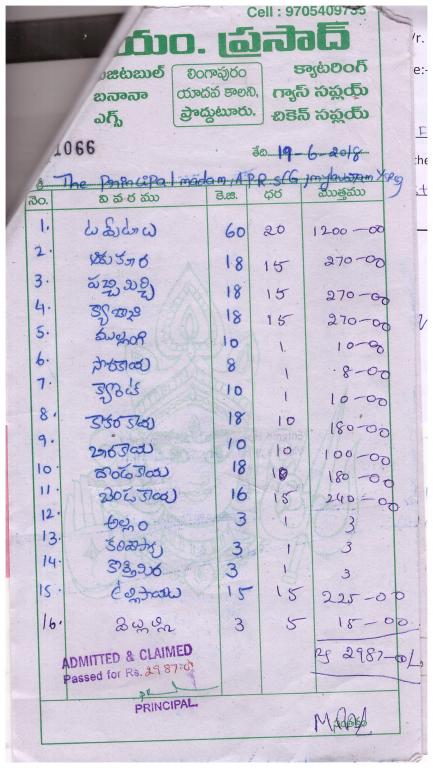 Cell : 9705409735
యం. ప్రసాద్
జిటబుల్ లింగాపురం క్యాటరింగ్
బనానా యాదవ కాలని, గ్యాస్ సప్లయ్
ఎగ్స్ ప్రొద్దుటూరు. చికెన్ సప్లయ్
1066 తేది 19-6-2018
శ్రీ The Principal madam, A.P.R.S(G)
నెం. వివరము కె.జి. ధర మొత్తము
1. టమోటాలు 60 20 1200-00
2. 18 15 270-00
3. పచ్చిమిర్చి 18 15 270-00
4. క్యాబేజి 18 15 270-00
5. ముల్లంగి 10 1 10-00
6. సొరకాయ 8 1 8-00
7. క్యారెట్ 10 1 10-00
8. కాకరకాయ 18 10 180-00
9. బీరకాయ 10 10 100-00
10. దొండకాయ 18 10 180-00
11. బెండకాయ 16 15 240-00
12. అల్లం 3 1 3
13. కరివేపాకు 3 1 3
14. కొత్తిమిర 3 1 3
15. ఉల్లిపాయలు 15 15 225-00
16. వెల్లుల్లి 3 5 15-00
ADMITTED & CLAIMED
Passed for Rs. 2987-00
2987-00
PRINCIPAL
సంతకం